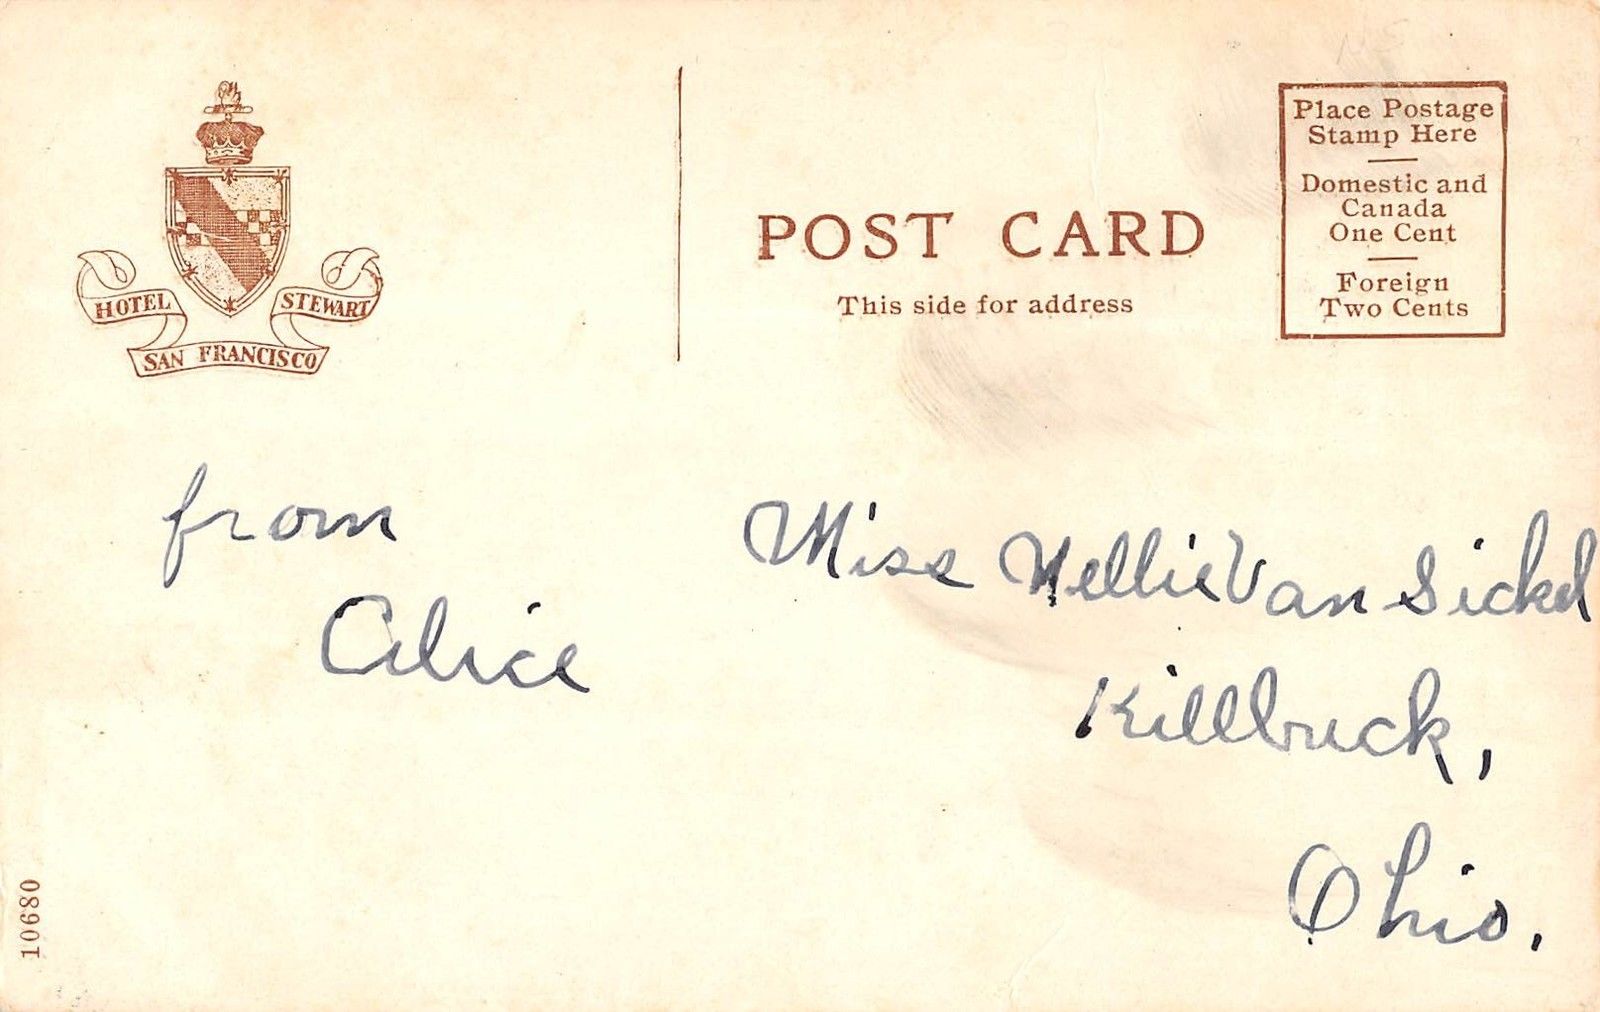 HOTEL STEWART
SAN FRANCISCO
POST CARD
This side for address
Place Postage
Stamp Here
Domestic and
Canada
One Cent
Foreign
Two Cents
from
Alice
Miss Nellie Van Sickel
Killbuck,
Ohio.
10680